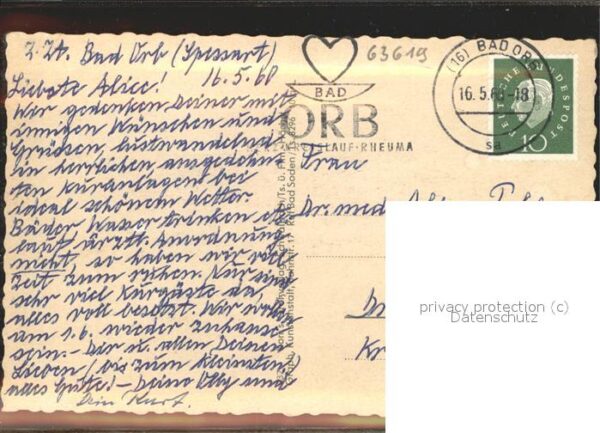 z. Zt. Bad Orb (Spessart)
16.5.60
Liebste Alice!
Wir gedenken Deiner mit
innigen Wünschen und
Grüssen, lustwandelnd
in herrlichen ausgedehn
ten Kuranlagen bei
ideal schönem Wetter.
Bäder Wassertrinken
laut ärztl. Anordnung
nicht, so haben wir viel
Zeit zum ruhen. Nur
sehr viel Kurgäste da,
alles voll besetzt. Wir
am 1.6. wieder zuhause
sein. – Dir u. allen Deinen
Lieben (bis zum Kleinsten)
alles Gute! – Deine Olly und
Dein Kurt.
63619
BAD
ORB
KREISLAUF·RHEUMA
(16) BAD ORB
16.5.60-18
sa
DEUTSCHE BUNDESPOST
10
Frau
Dr. med.
privacy protection (c)
Datenschutz